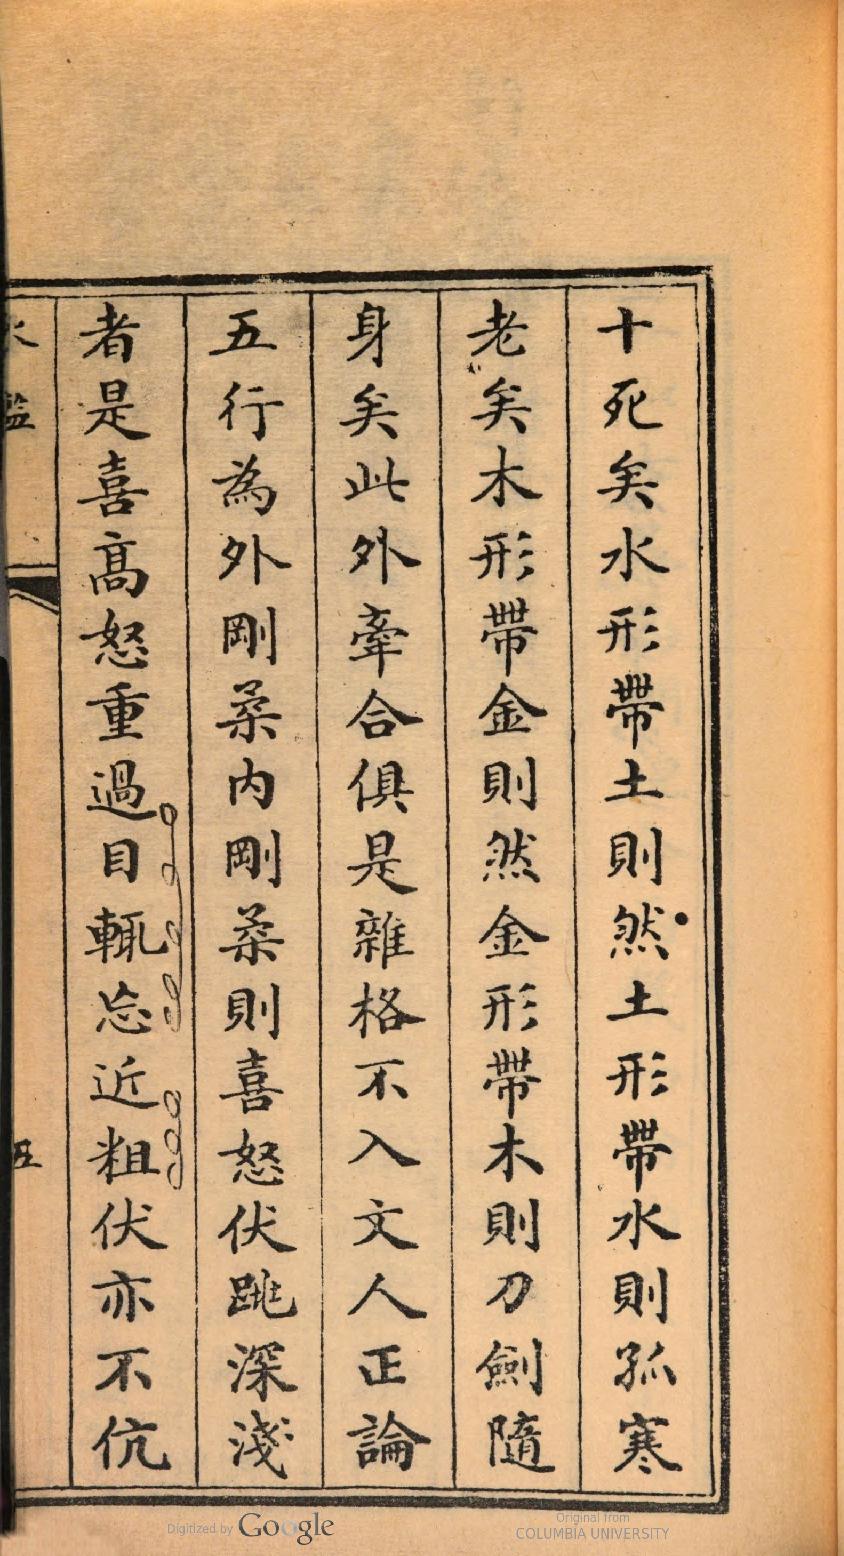 十死矣水形帶土則然土形帶水則孤寒
老矣木形帶金則然金形帶木則刀劍隨
身矣此外牽合俱是雜格不入文人正論
五行為外剛柔内剛柔則喜怒伏跳深淺
者是喜高怒重過目輒忘近粗伏亦不伉
鑑
五
Digitized by Google
Original from
COLUMBIA UNIVERSITY